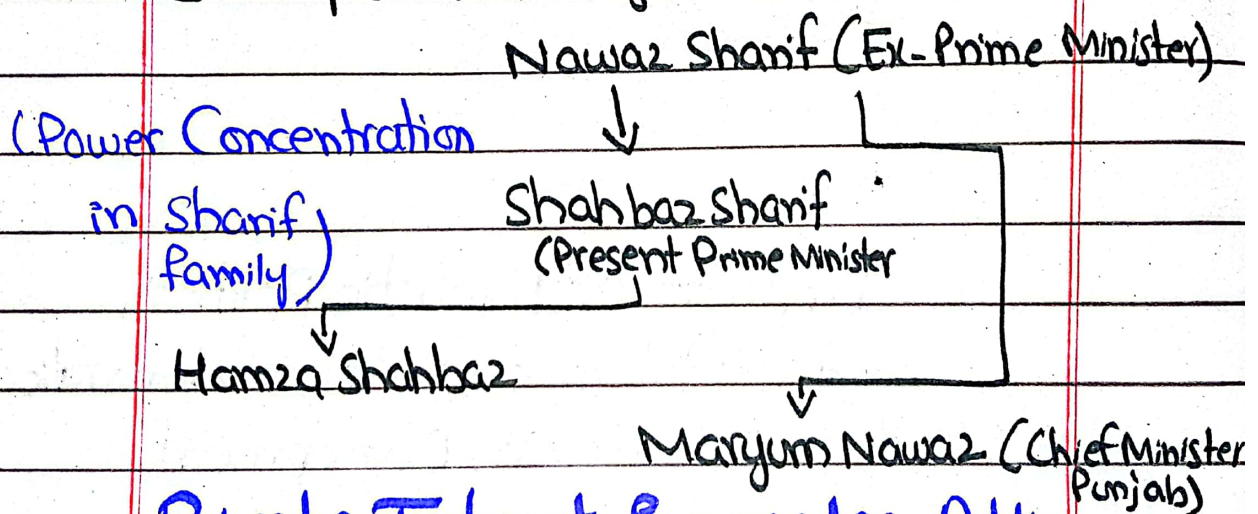 Nawaz Sharif (Ex-Prime Minister)
(Power Concentration
in Sharif
family)
Shahbaz Sharif
(Present Prime Minister
Hamza Shahbaz
Maryum Nawaz (Chief Minister
Punjab)